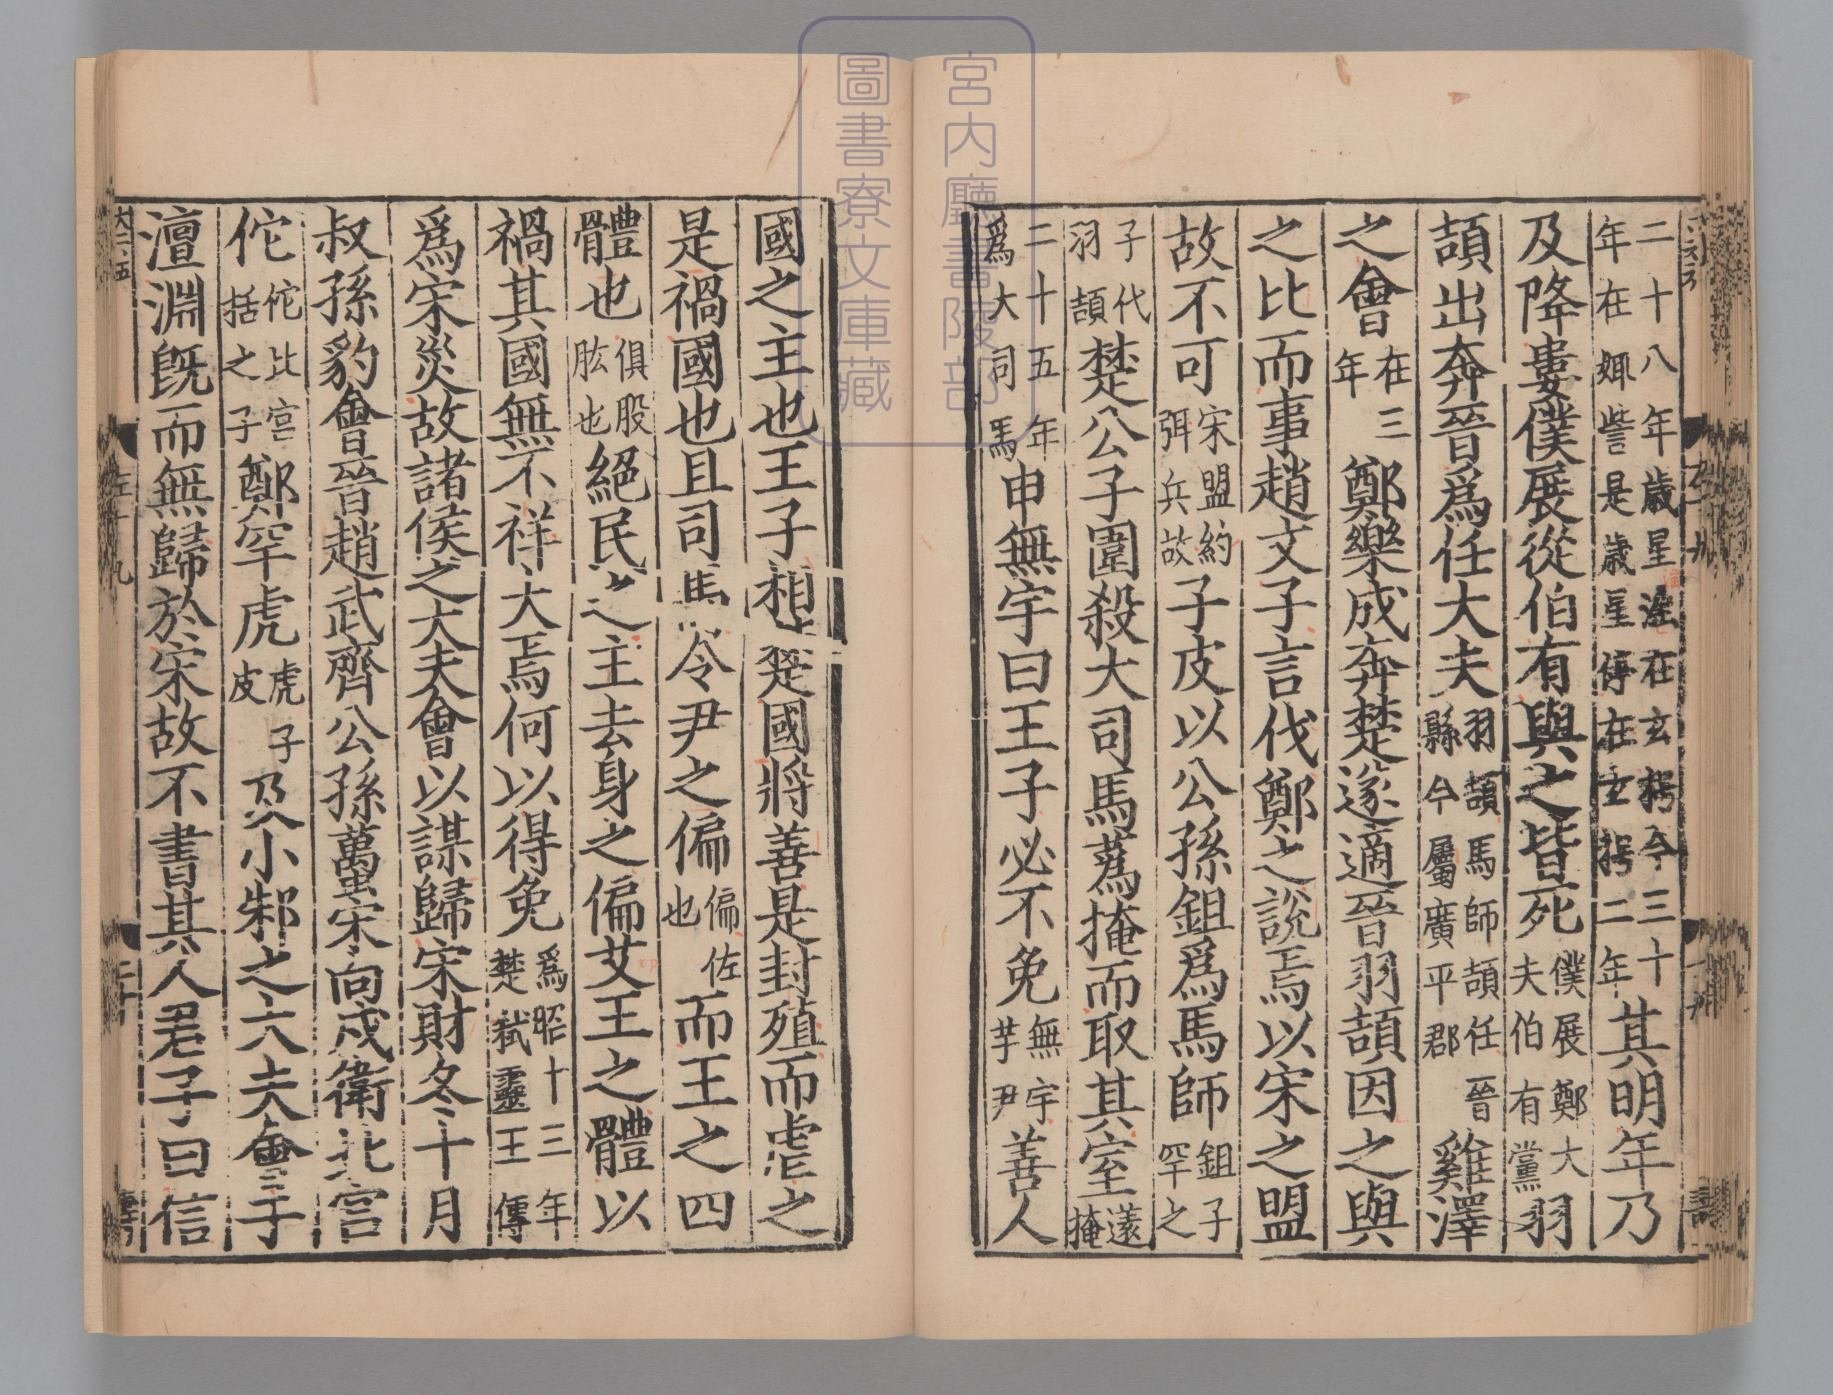 二十八年歲星淫在玄枵今三十年在娵訾是歲星停在玄枵二年其明年乃
及降婁僕展從伯有與之皆死僕展鄭大夫伯有黨羽
頡出奔晉爲任大夫羽頡馬師頡任晉縣今屬廣平郡雞澤
之會在三年鄭樂成奔楚遂適晉羽頡因之與
之比而事趙文子言伐鄭之說焉以宋之盟
故不可宋盟約弭兵故子皮以公孫鉏爲馬師鉏子罕之
子代羽頡楚公子圍殺大司馬蒍掩而取其室薳掩
二十五年爲大司馬申無宇曰王子必不免無宇芋尹善人
國之主也王子相楚國將善是封殖而虐之
是禍國也且司馬令尹之偏偏佐也而王之四
體也俱股肱也絕民之主去身之偏艾王之體以
禍其國無不祥大焉何以得免爲昭十三年楚弒靈王傳
爲宋災故諸侯之大夫會以謀歸宋財冬十月
叔孫豹會晉趙武齊公孫蠆宋向戌衛北宮
佗佗北宮括之子鄭罕虎虎子皮及小邾之大夫會于
澶淵旣而無歸於宋故不書其人君子曰信
宮内廳書陵部
圖書寮文庫藏